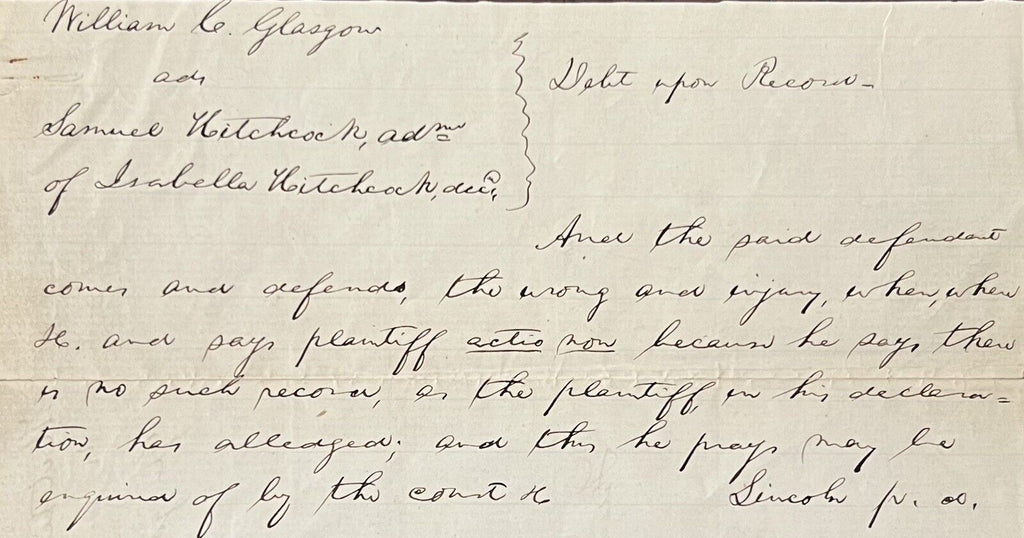 William C. Glasgow
ads
Samuel Hitchcock, admr
of Isabella Hitchcock, decd.
Debt upon Record—
And the said defendant
comes and defends, the wrong and injury, when, where
&c. and says plaintiff actio non because he says there
is no such record, as the plaintiff, in his declara=
tion, has alledged; and this he prays may be
enquired of by the court &c
Lincoln p. d.